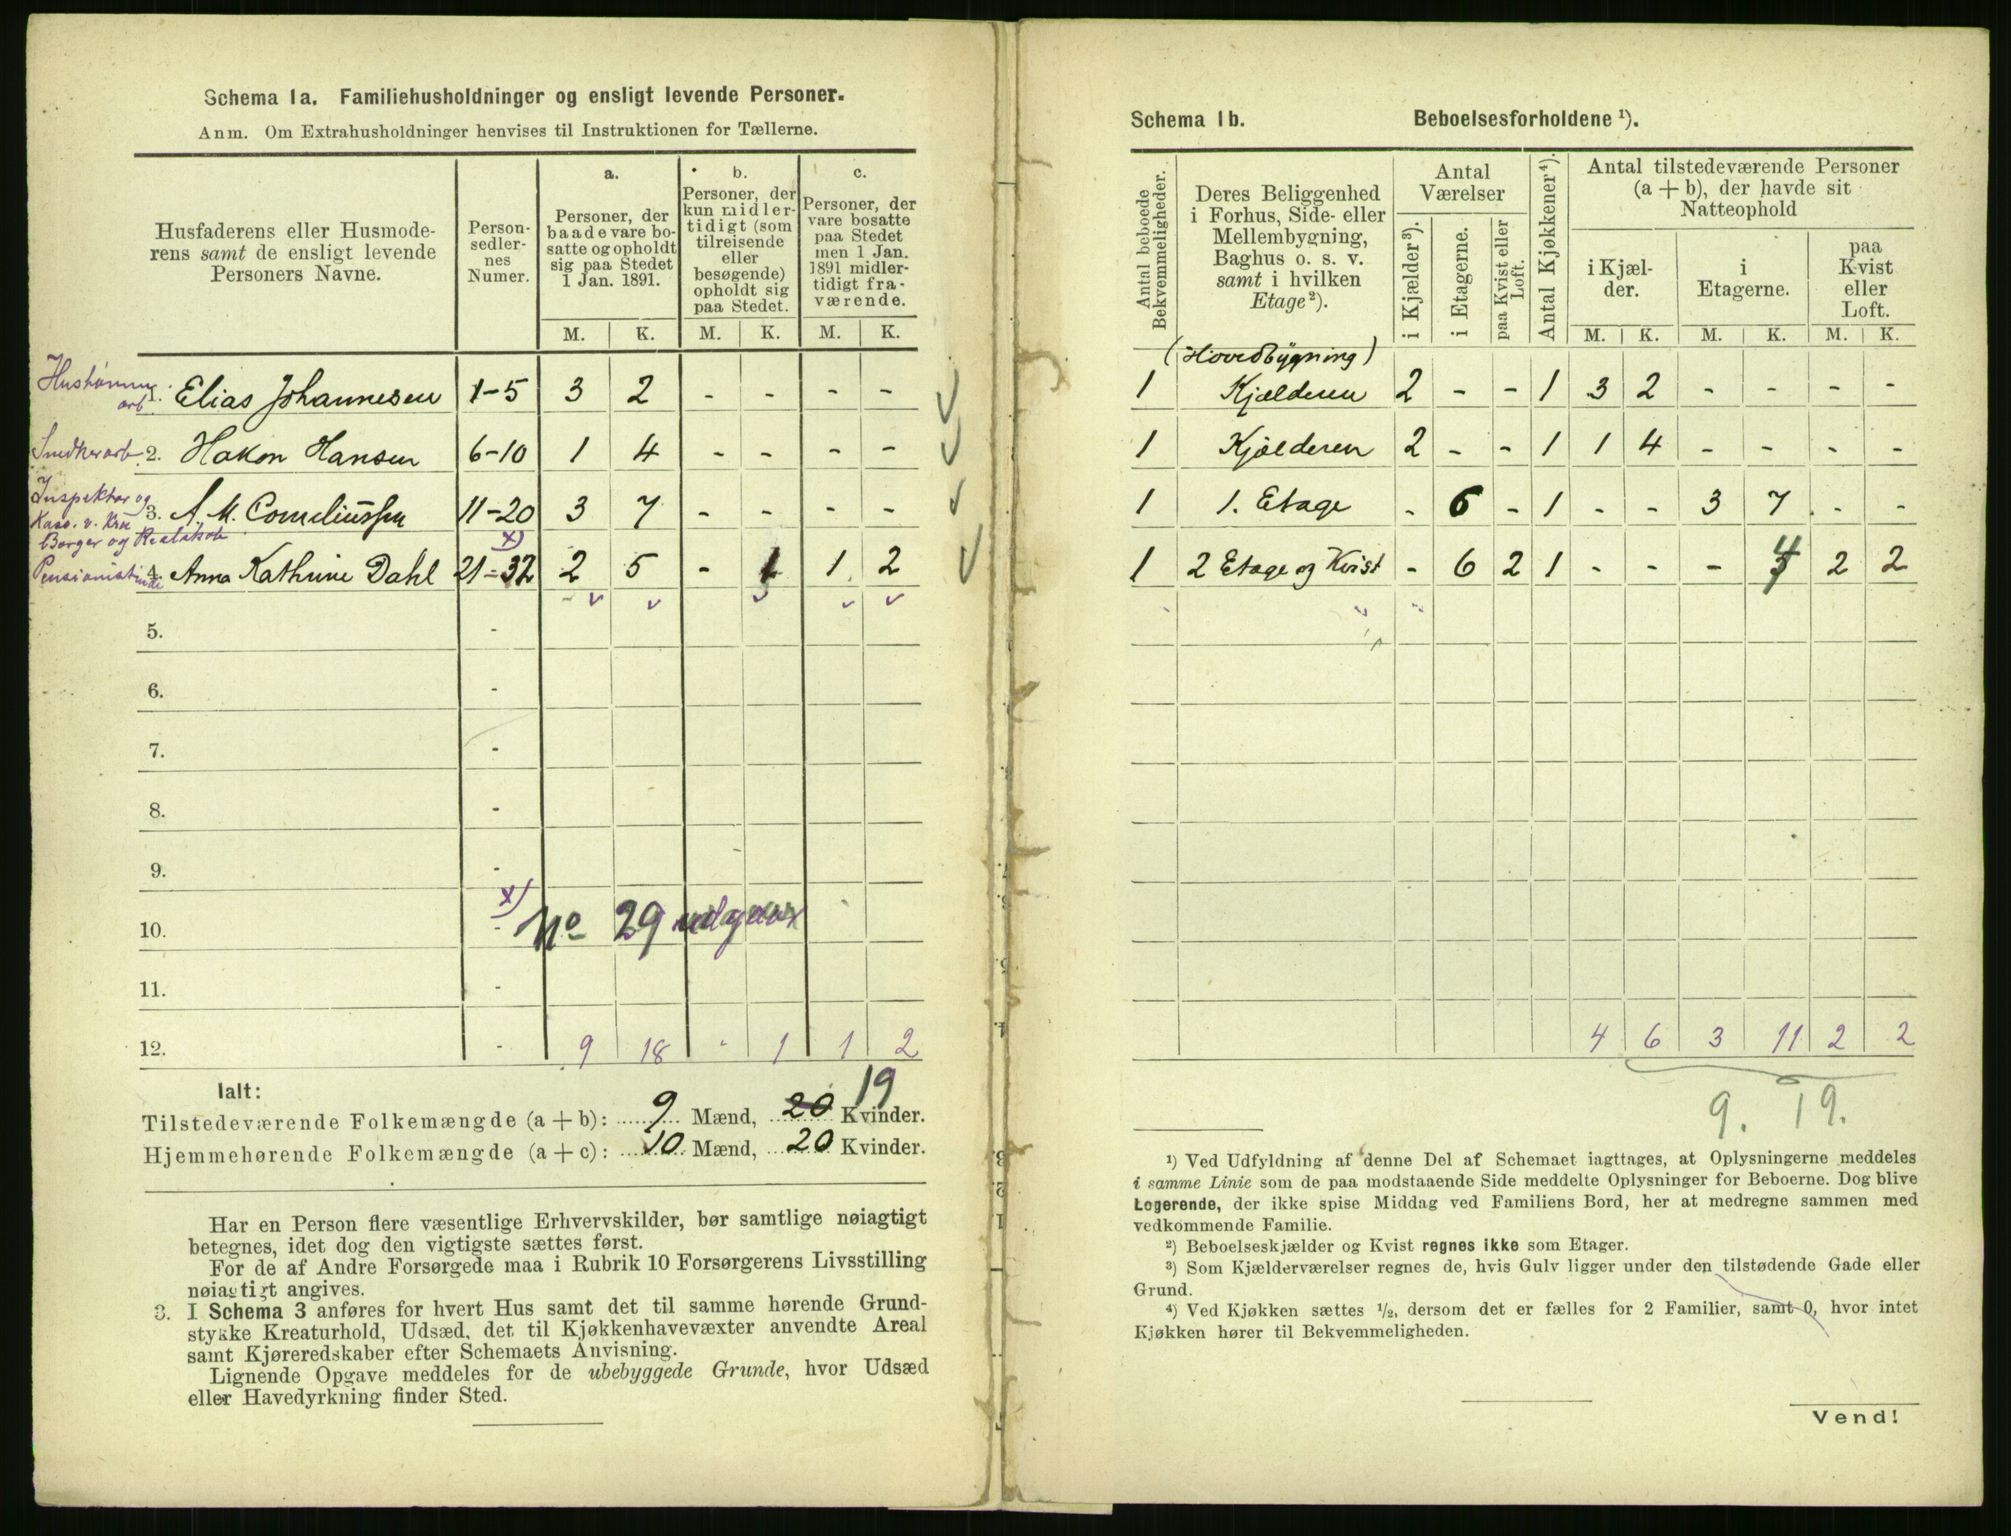 Schema 1a. Familiehusholdninger og ensligt levende Personer.
Anm. Om Extrahusholdninger henvises til Instruktionen for Tællerne.
Husfaderens eller Husmode-
rens samt de ensligt levende
Personers Navne.
Person-
sedler-
nes
Numer.
a.
Personer, der
baade vare bo-
satte og opholdt
sig paa Stedet
1 Jan. 1891.
b.
Personer, der
kun midler-
tidigt (som
tilreisende
eller
besøgende)
opholdt sig
paa Stedet.
c.
Personer, der
vare bosatte
paa Stedet
men 1 Jan.
1891 midler-
tidigt fra-
værende.
M. K. M. K. M. K.
arb. 1. Elias Johannesen 1-5 3 2 - - - -
Snedkerarb. 2. Hakon Hansen 6-10 1 4 - - - -
Inspektør og
3. A. M. Corneliussen 11-20 3 7 - - - -
Borger og Realskole x)
Pensionistinde 4. Anna Kathrine Dahl 21-32 2 5 - 1 1 2
5. -
6. -
7. -
8. -
9. -
x)
10. - No 29 udgaar
11. -
12. - 9 18 - 1 1 2
Ialt: 19
Tilstedeværende Folkemængde (a + b): 9 Mænd, 20 Kvinder.
Hjemmehørende Folkemængde (a + c): 10 Mænd, 20 Kvinder.
Har en Person flere væsentlige Erhvervskilder, bør samtlige nøiagtigt
betegnes, idet dog den vigtigste sættes først.
For de af Andre Forsørgede maa i Rubrik 10 Forsørgerens Livsstilling
nøiagtigt angives.
3. I Schema 3 anføres for hvert Hus samt det til samme hørende Grund-
stykke Kreaturhold, Udsæd, det til Kjøkkenhavevæxter anvendte Areal
samt Kjøreredskaber efter Schemaets Anvisning.
Lignende Opgave meddeles for de ubebyggede Grunde, hvor Udsæd
eller Havedyrkning finder Sted.
Schema 1b. Beboelsesforholdene ¹).
Antal beboede
Bekvemmeligheder.
Deres Beliggenhed
i Forhus, Side- eller
Mellembygning,
Baghus o. s. v.
samt i hvilken
Etage²).
Antal
Værelser
i Kjælder³).
i Etagerne.
paa Kvist eller
Loft.
Antal Kjøkkener⁴).
Antal tilstedeværende Personer
(a + b), der havde sit
Natteophold
i Kjæl-
der.
i
Etagerne.
paa
Kvist
eller
Loft.
M. K. M. K. M. K.
(Hovedbygning)
1 Kjælderen 2 - - 1 3 2 - - - -
1 Kjælderen 2 - - 1 1 4 - - - -
1 1. Etage - 6 - 1 - - 3 7 - -
1 2 Etage og Kvist - 6 2 1 - - - 4 2 2
4 6 3 11 2 2
9. 19.
¹) Ved Udfyldning af denne Del af Schemaet iagttages, at Oplysningerne meddeles
i samme Linie som de paa modstaaende Side meddelte Oplysninger for Beboerne. Dog blive
Logerende, der ikke spise Middag ved Familiens Bord, her at medregne sammen med
vedkommende Familie.
²) Beboelseskjælder og Kvist regnes ikke som Etager.
³) Som Kjælderværelser regnes de, hvis Gulv ligger under den tilstødende Gade eller
Grund.
⁴) Ved Kjøkken sættes ¹/₂, dersom det er fælles for 2 Familier, samt 0, hvor intet
Kjøkken hører til Bekvemmeligheden.
Vend!